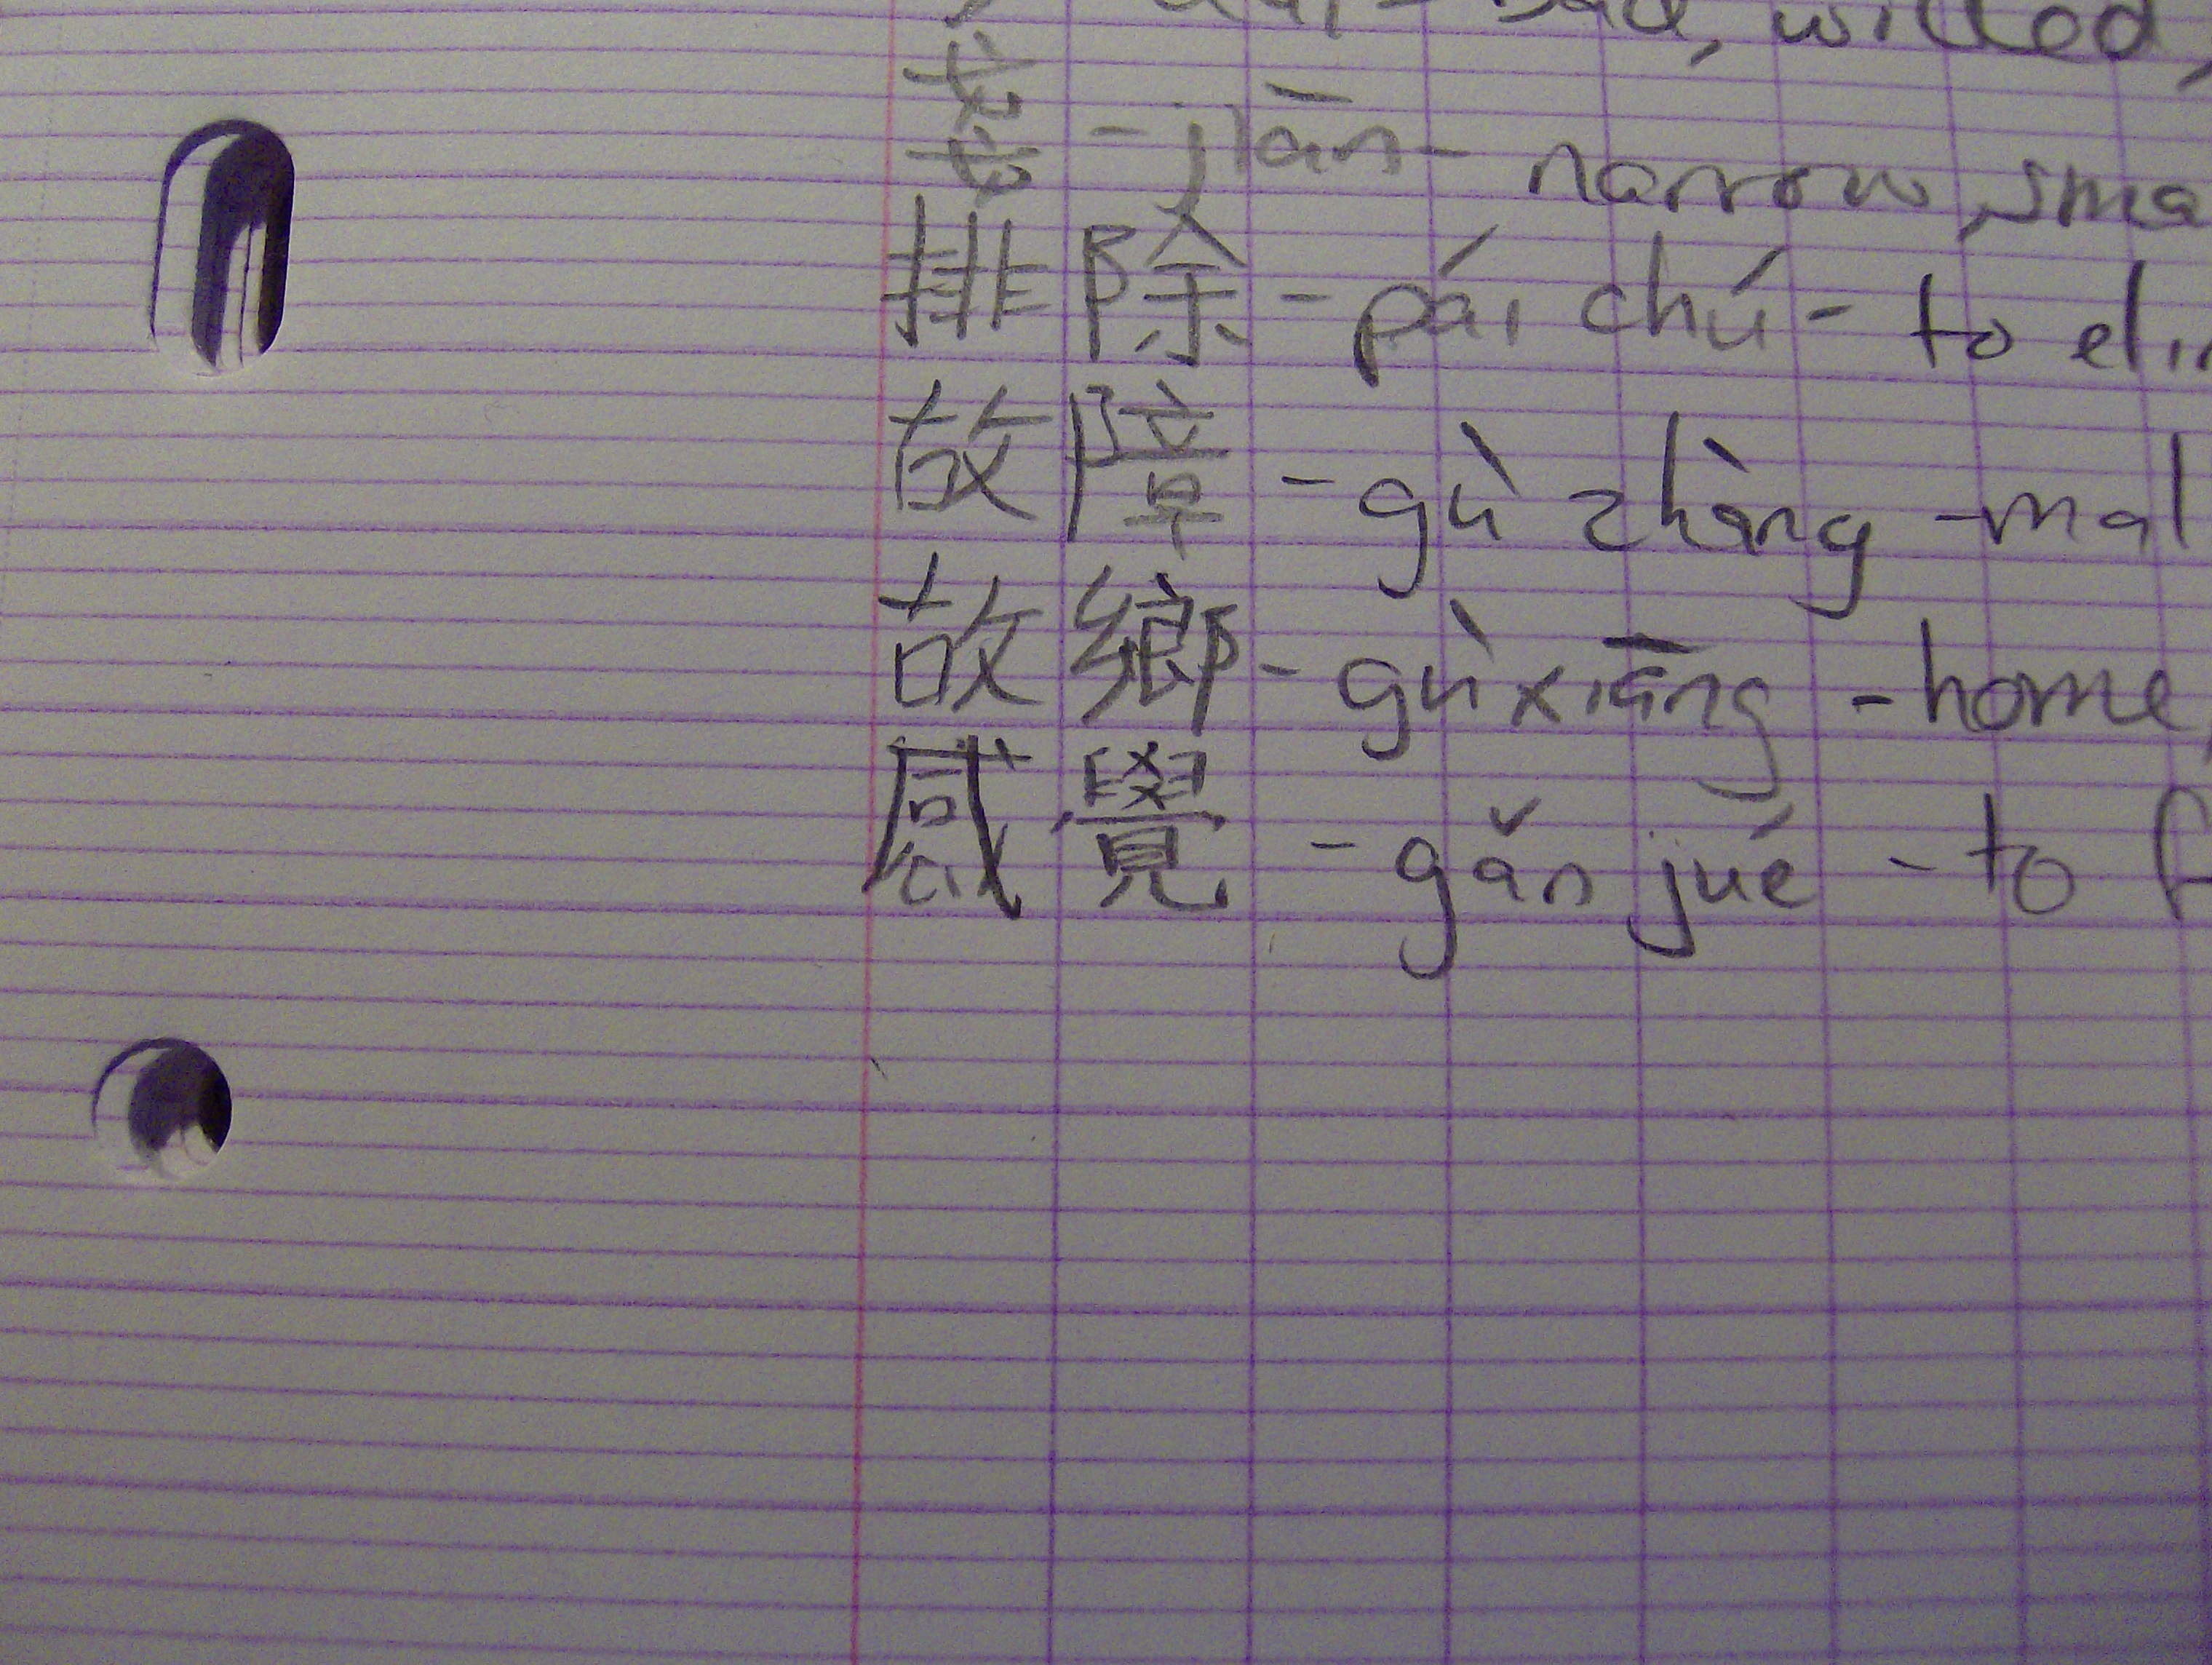 bad, willed,
戔 - jiān - narrow, sma
排除 - pái chú - to eli
故障 - gù zhàng - mal
故鄉 - gù xiāng - home,
感覺 - gǎn jué - to f